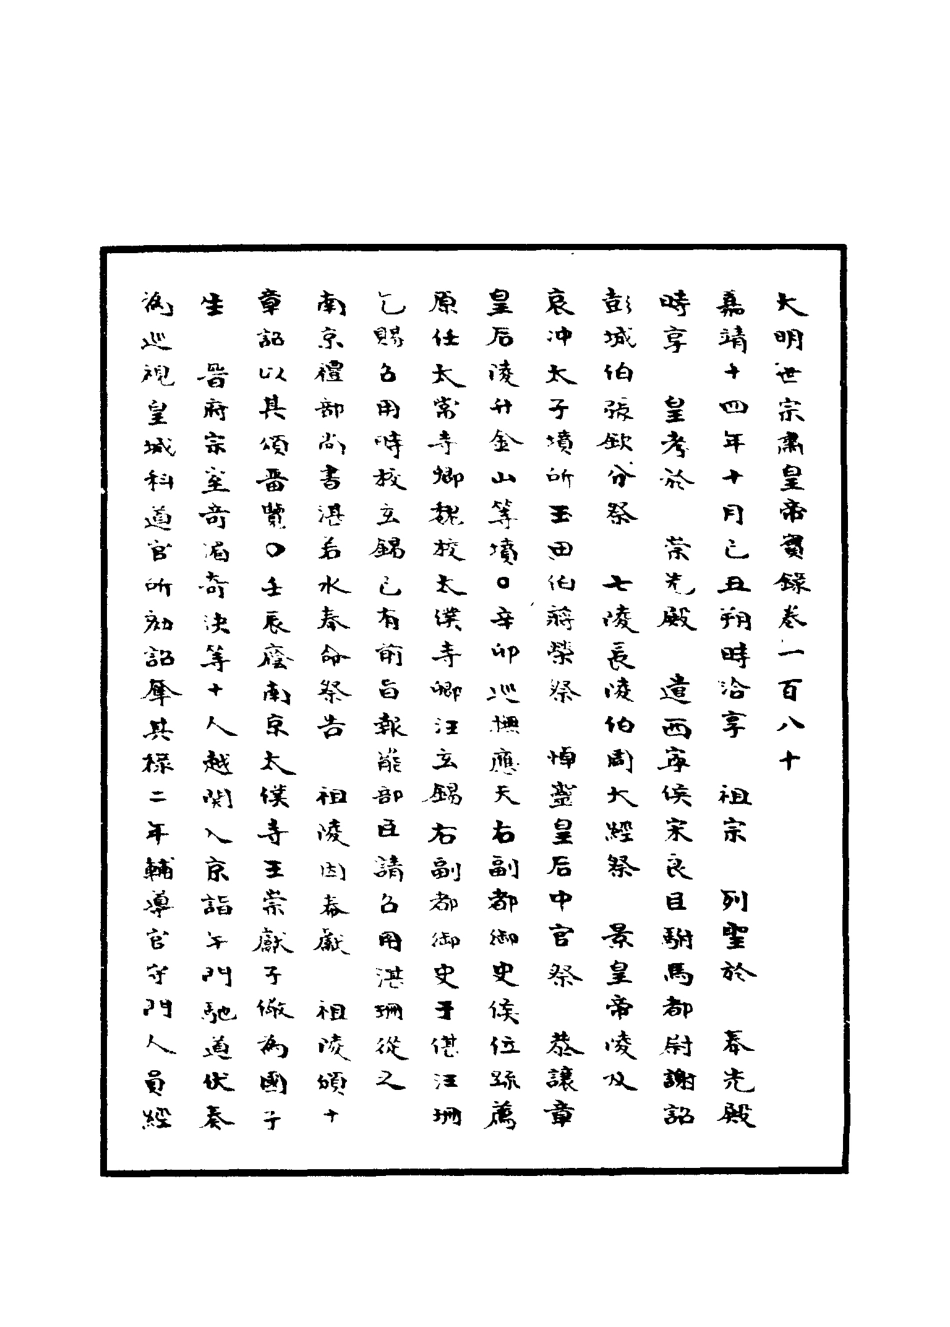 大明世宗肅皇帝實錄卷一百八十
嘉靖十四年十月己丑朔時洽享　祖宗　列聖於　奉光殿
時享　皇考於　崇光殿　遣西寧侯宋良臣駙馬都尉謝詔
彭城伯張欽分祭　七陵長陵伯周大經祭　景皇帝陵及
哀冲太子墳所玉田伯蔣榮祭　悼靈皇后中官祭　恭讓章
皇后陵升金山等墳○辛卯巡撫應天右副都御史侯位疏薦
原任太常寺卿魏校太僕寺卿汪玄錫右副都御史于偡汪珊
乞賜召用時校玄錫已有前旨報能部臣請召用湛珊從之
南京禮部尚書湛若水奉命祭告　祖陵因奏獻　祖陵頌十
章詔以其頌晋覽○壬辰廕南京太僕寺王崇獻子儆為國子
生　晋府宗室奇湢奇決等十人越関入京詣午門馳道伏奏
為巡視皇城科道官所劾詔革其祿二年輔導官守門人員經